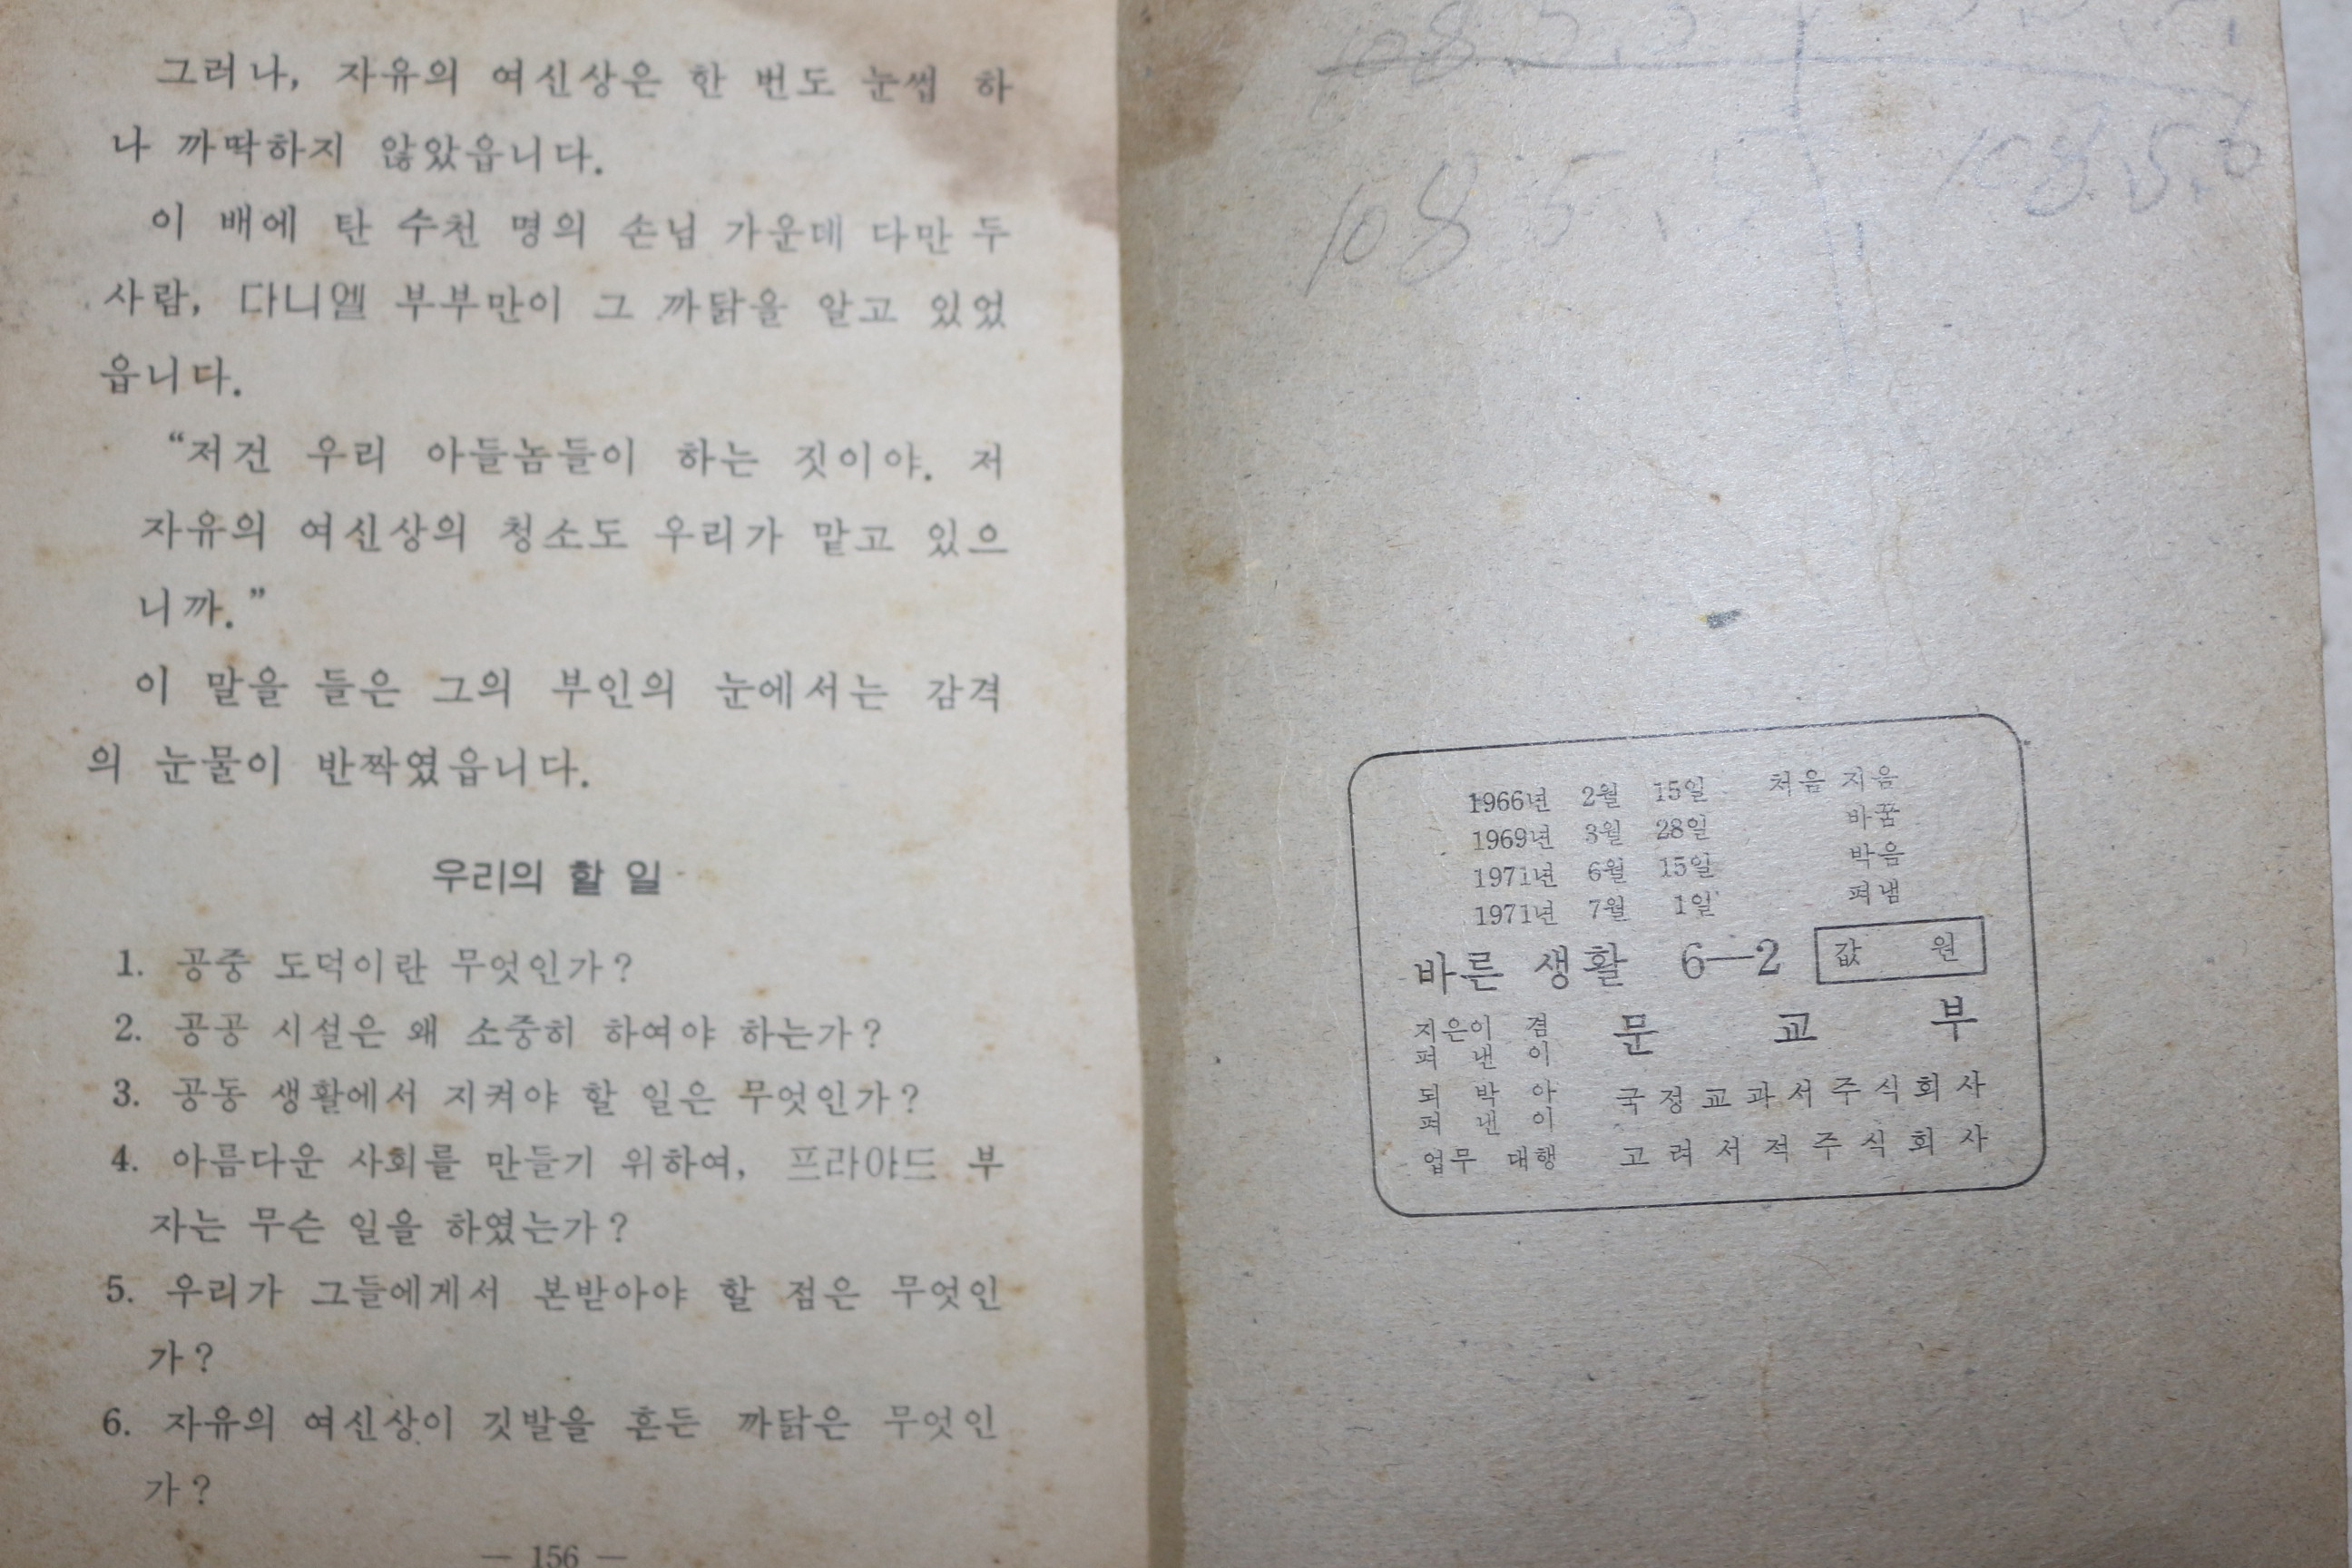 그러나, 자유의 여신상은 한 번도 눈썹 하
나 까딱하지 않았읍니다.
이 배에 탄 수천 명의 손님 가운데 다만 두
사람, 다니엘 부부만이 그 까닭을 알고 있었
읍니다.
“저건 우리 아들놈들이 하는 짓이야. 저
자유의 여신상의 청소도 우리가 맡고 있으
니까.”
이 말을 들은 그의 부인의 눈에서는 감격
의 눈물이 반짝였읍니다.
우리의 할 일
1. 공중 도덕이란 무엇인가?
2. 공공 시설은 왜 소중히 하여야 하는가?
3. 공동 생활에서 지켜야 할 일은 무엇인가?
4. 아름다운 사회를 만들기 위하여, 프라야드 부
자는 무슨 일을 하였는가?
5. 우리가 그들에게서 본받아야 할 점은 무엇인
가?
6. 자유의 여신상이 깃발을 흔든 까닭은 무엇인
가?
— 156 —
1966년 2월 15일 처음 지음
1969년 3월 28일 바꿈
1971년 6월 15일 박음
1971년 7월 1일 펴냄
바른 생활 6—2 값 원
지은이 겸
펴 낸 이
문 교 부
되 박 아
펴 낸 이
국정교과서주식회사
업무 대행 고려서적주식회사